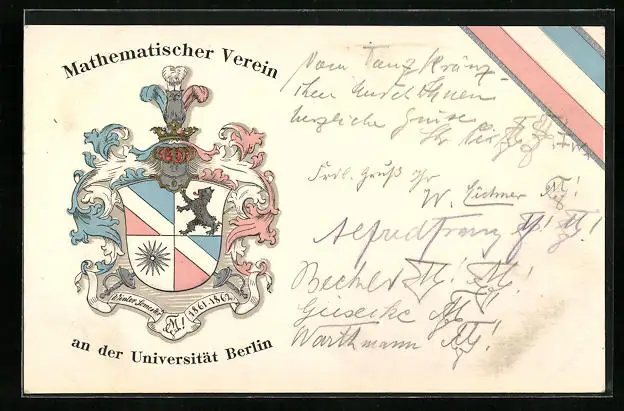 Mathematischer Verein
Winter Semester 1861-1862
an der Universität Berlin
Vom Tanzkränz-
chen sendet Ihnen
herzliche Grüsse
Frdl. Gruß Ihr
W.
Alfred Franz
Bechler
Giesecke
Warthmann